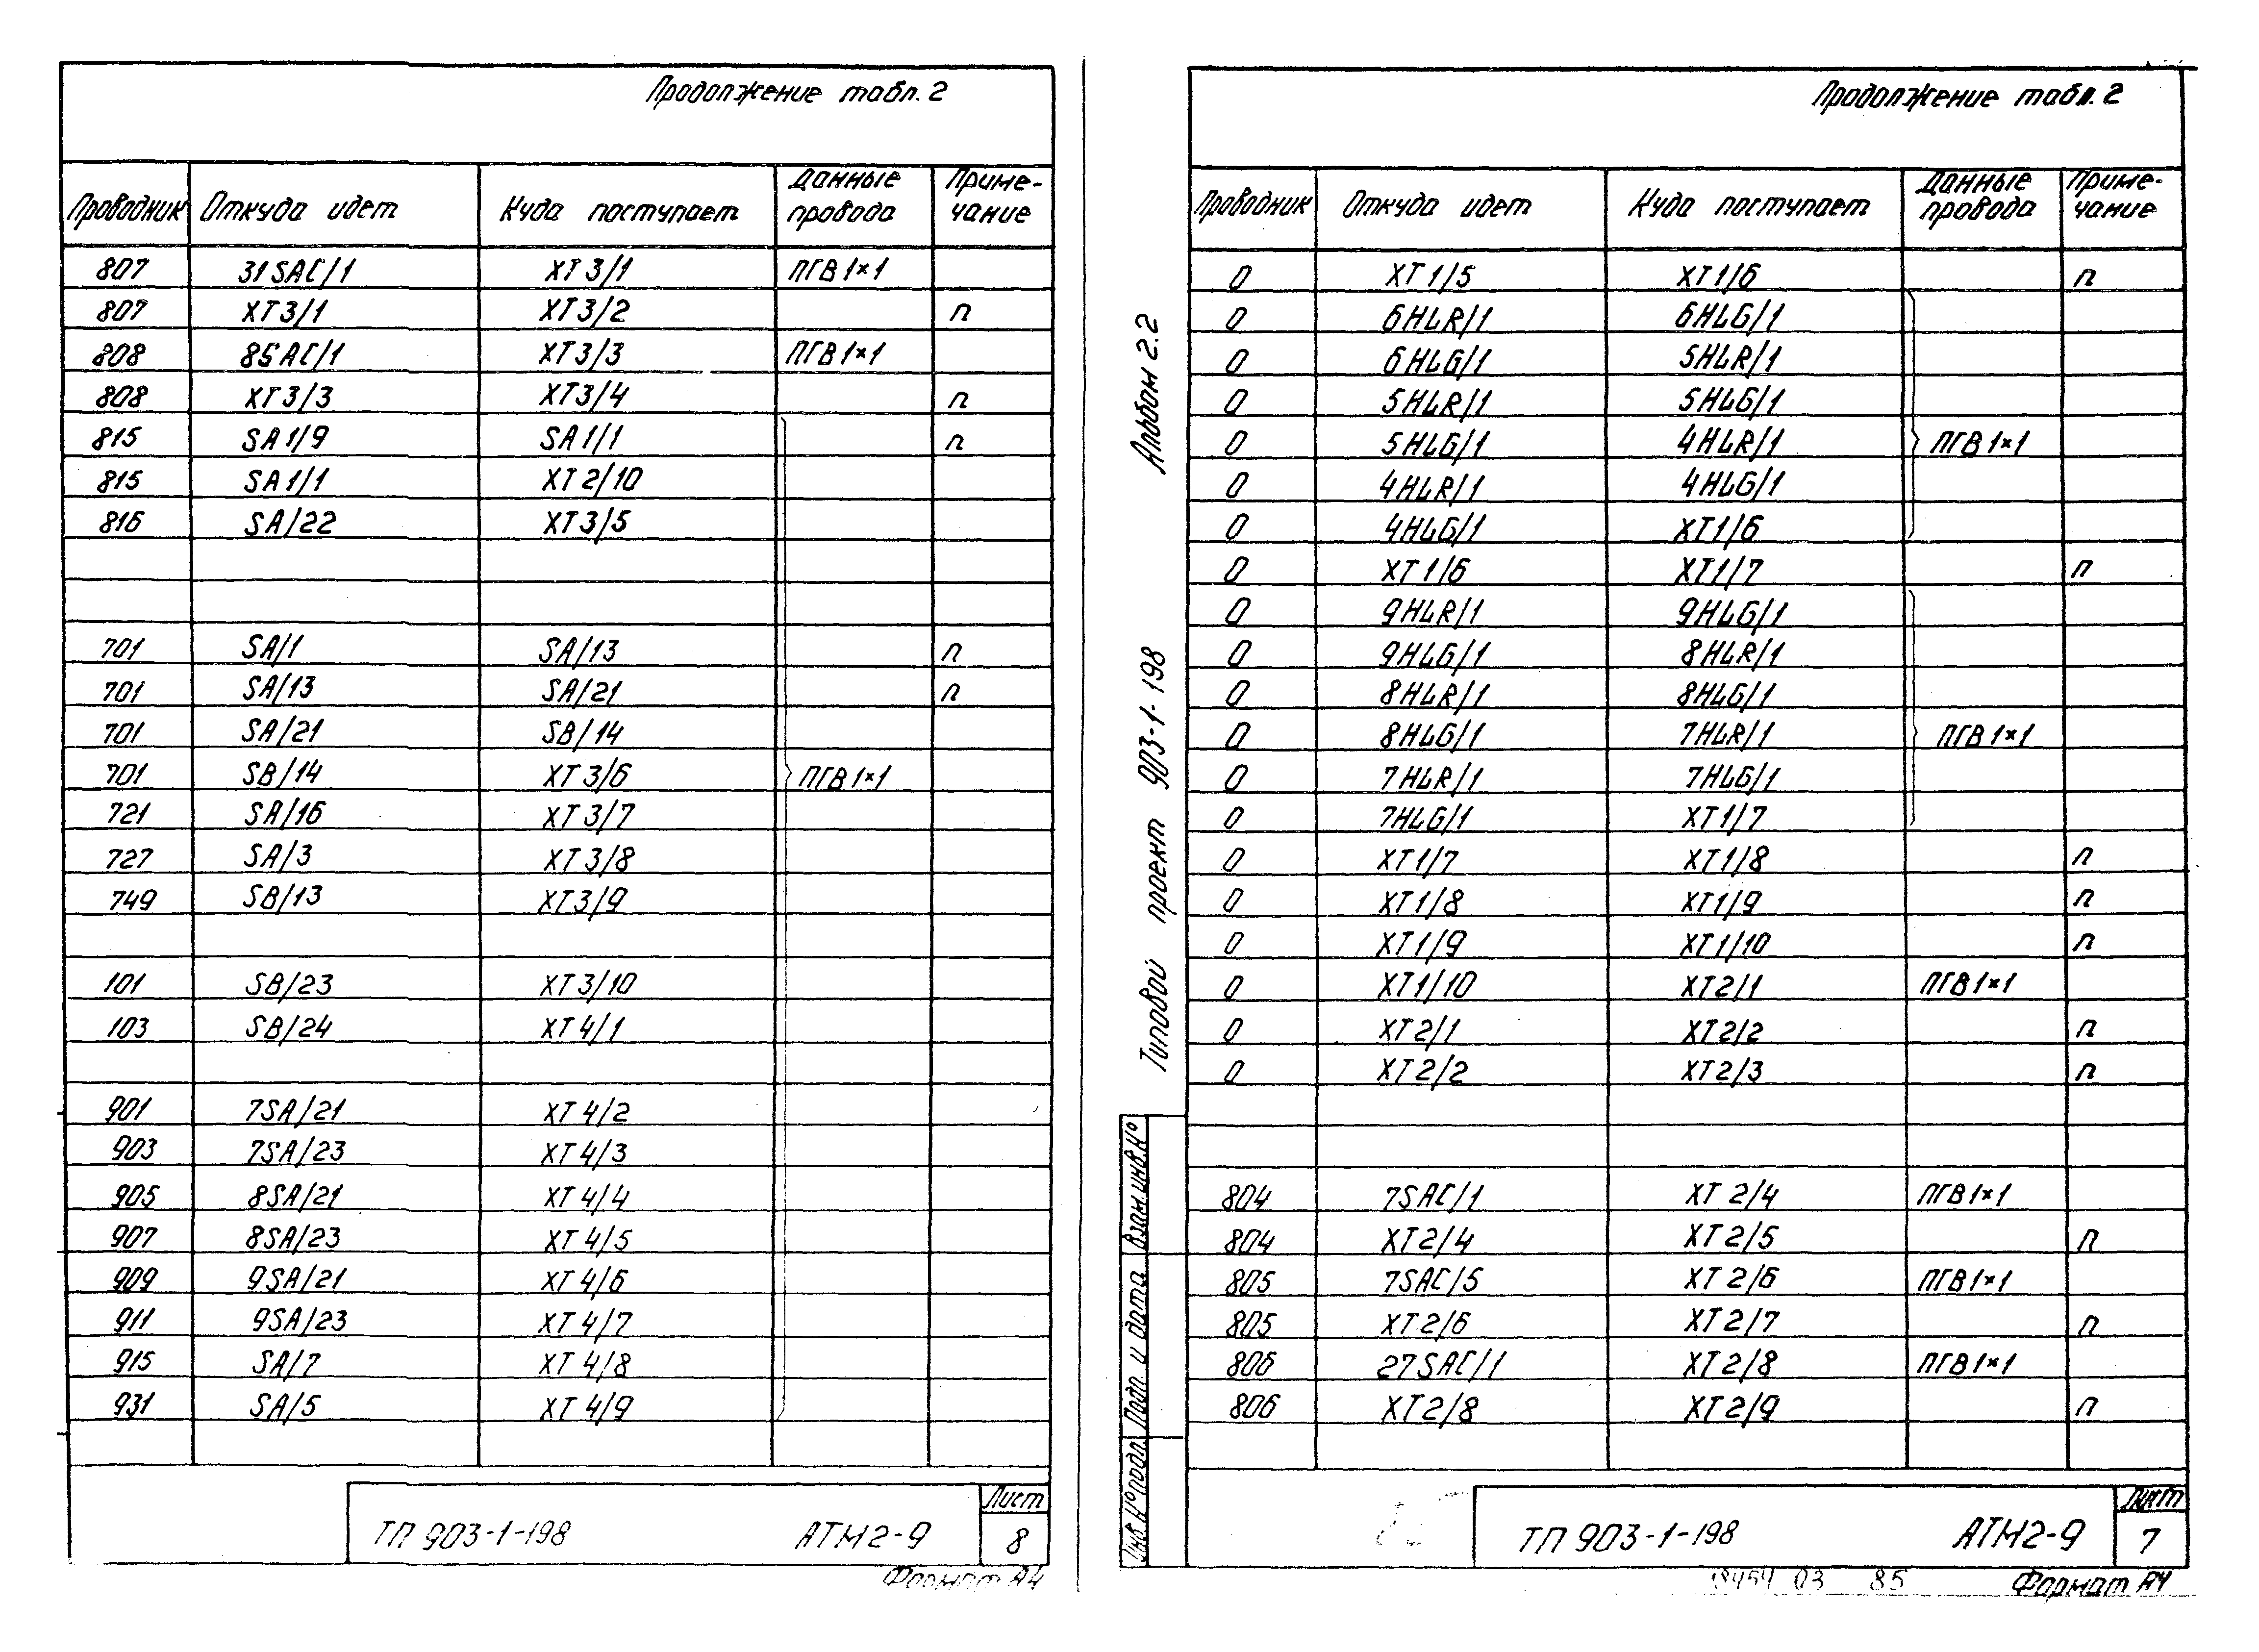 Продолжение табл. 2
Проводник Откуда идет Куда поступает Данные провода Приме-чание
807 31SAC/1 XT3/1 ПГВ 1×1
807 XT3/1 XT3/2 п
808 8SAC/1 XT3/3 ПГВ 1×1
808 XT3/3 XT3/4 п
815 SA1/9 SA1/1 п
815 SA1/1 XT2/10
816 SA/22 XT3/5
701 SA/1 SA/13 п
701 SA/13 SA/21 п
701 SA/21 SB/14
701 SB/14 XT3/6 ПГВ 1×1
721 SA/16 XT3/7
727 SA/3 XT3/8
749 SB/13 XT3/9
101 SB/23 XT3/10
103 SB/24 XT4/1
901 7SA/21 XT4/2
903 7SA/23 XT4/3
905 8SA/21 XT4/4
907 8SA/23 XT4/5
909 9SA/21 XT4/6
911 9SA/23 XT4/7
915 SA/7 XT4/8
931 SA/5 XT4/9
ТП 903-1-198 АТМ2-9 Лист 8
Формат А4
Альбом 2.2
Типовой проект 903-1-198
Взам.инв.№
Подп. и дата
Инв.№подл.
Продолжение табл. 2
Проводник Откуда идет Куда поступает Данные провода Приме-чание
0 XT1/5 XT1/6 п
0 6HLR/1 6HLG/1
0 6HLG/1 5HLR/1
0 5HLR/1 5HLG/1
0 5HLG/1 4HLR/1 ПГВ 1×1
0 4HLR/1 4HLG/1
0 4HLG/1 XT1/6
0 XT1/6 XT1/7 п
0 9HLR/1 9HLG/1
0 9HLG/1 8HLR/1
0 8HLR/1 8HLG/1
0 8HLG/1 7HLR/1 ПГВ 1×1
0 7HLR/1 7HLG/1
0 7HLG/1 XT1/7
0 XT1/7 XT1/8 п
0 XT1/8 XT1/9 п
0 XT1/9 XT1/10 п
0 XT1/10 XT2/1 ПГВ 1×1
0 XT2/1 XT2/2 п
0 XT2/2 XT2/3 п
804 7SAC/1 XT2/4 ПГВ 1×1
804 XT2/4 XT2/5 п
805 7SAC/5 XT2/6 ПГВ 1×1
805 XT2/6 XT2/7 п
806 27SAC/1 XT2/8 ПГВ 1×1
806 XT2/8 XT2/9 п
ТП 903-1-198 АТМ2-9 Лист 7
03 85 Формат А4